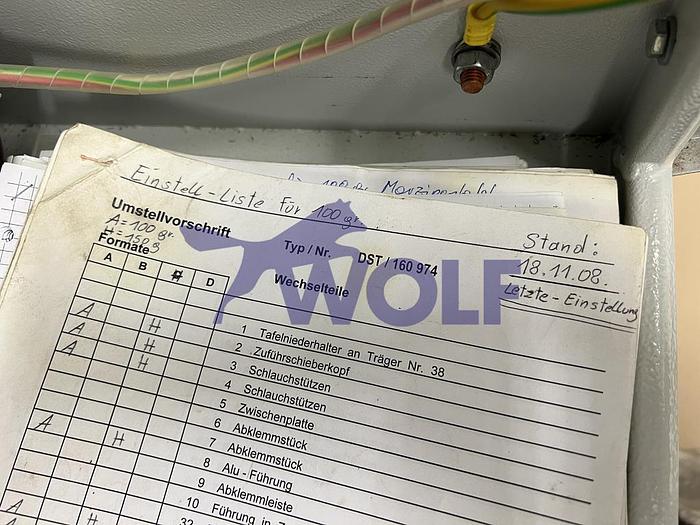 Einstell-Liste für 100 gr.
Stand:
18.11.08.
Letzte-Einstellung
Umstellvorschrift
A=100 gr.
H=150 g
Typ / Nr. DST / 160 974
Formate
Wechselteile
A B H D
WOLF
A H 1 Tafelniederhalter an Träger Nr. 38
A H 2 Zuführschieberkopf
A H 3 Schlauchstützen
4 Schlauchstützen
5 Zwischenplatte
A H 6 Abklemmstück
7 Abklemmstück
8 Alu - Führung
9 Abklemmleiste
A H 10 Führung in
32